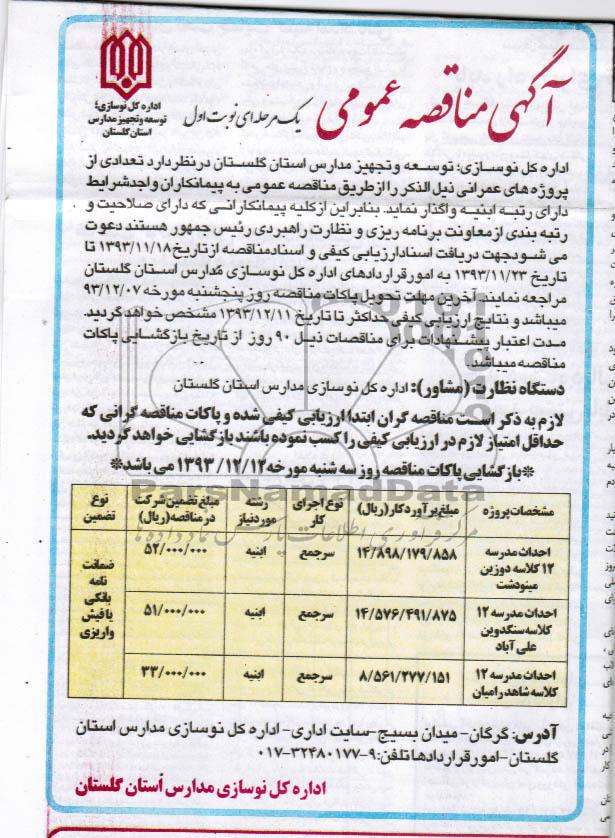 آگهی مناقصه عمومی
یک مرحله ای نوبت اول
اداره کل نوسازی؛
توسعه وتجهیز مدارس
استان گلستان
اداره کل نوسازی؛ توسعه وتجهیز مدارس استان گلستان درنظردارد تعدادی از
پروژه های عمرانی ذیل الذکر را ازطریق مناقصه عمومی به پیمانکاران واجدشرایط
دارای رتبه ابنیه واگذار نماید. بنابراین ازکلیه پیمانکارانی که دارای صلاحیت و
رتبه بندی ازمعاونت برنامه ریزی و نظارت راهبردی رئیس جمهور هستند دعوت
می شودجهت دریافت اسنادارزیابی کیفی و اسنادمناقصه ازتاریخ ۱۳۹۳/۱۱/۱۸ تا
تاریخ ۱۳۹۳/۱۱/۲۳ به امورقراردادهای اداره کل نوسازی مدارس استان گلستان
مراجعه نمایند.آخرین مهلت تحویل پاکات مناقصه روز پنجشنبه مورخه ۹۳/۱۲/۰۷
میباشد و نتایج ارزیابی کیفی حداکثر تا تاریخ ۱۳۹۳/۱۲/۱۱ مشخص خواهدگردید.
مدت اعتبار پیشنهادات برای مناقصات ذیل ۹۰ روز از تاریخ بازگشایی پاکات
مناقصه میباشد.
دستگاه نظارت (مشاور): اداره کل نوسازی مدارس استان گلستان
لازم به ذکر است مناقصه گران ابتدا ارزیابی کیفی شده و پاکات مناقصه گرانی که
حداقل امتیاز لازم در ارزیابی کیفی را کسب نموده باشند بازگشایی خواهد گردید.
*بازگشایی پاکات مناقصه روز سه شنبه مورخه ۱۳۹۳/۱۲/۱۲ می باشد*
ParsNamadData
مرکز فرآوری اطلاعات پارس نماد داده ها
مشخصات پروژه | مبلغ برآوردکار (ریال) | نوع اجرای کار | رشته موردنیاز | مبلغ تضمین شرکت درمناقصه (ریال) | نوع تضمین
احداث مدرسه ۱۲ کلاسه دوزین مینودشت | ۱۴/۸۹۸/۱۷۹/۸۵۸ | سرجمع | ابنیه | ۵۲/۰۰۰/۰۰۰ | ضمانت نامه بانکی یا فیش واریزی
احداث مدرسه ۱۲ کلاسه سنگدوین علی آباد | ۱۴/۵۷۶/۴۹۱/۸۷۵ | سرجمع | ابنیه | ۵۱/۰۰۰/۰۰۰
احداث مدرسه ۱۲ کلاسه شاهد رامیان | ۸/۵۶۱/۲۷۷/۱۵۱ | سرجمع | ابنیه | ۳۳/۰۰۰/۰۰۰
آدرس: گرگان- میدان بسیج-سایت اداری- اداره کل نوسازی مدارس استان
گلستان-امورقراردادها تلفن:۹-۳۲۴۸۰۱۷۷-۰۱۷
اداره کل نوسازی مدارس استان گلستان